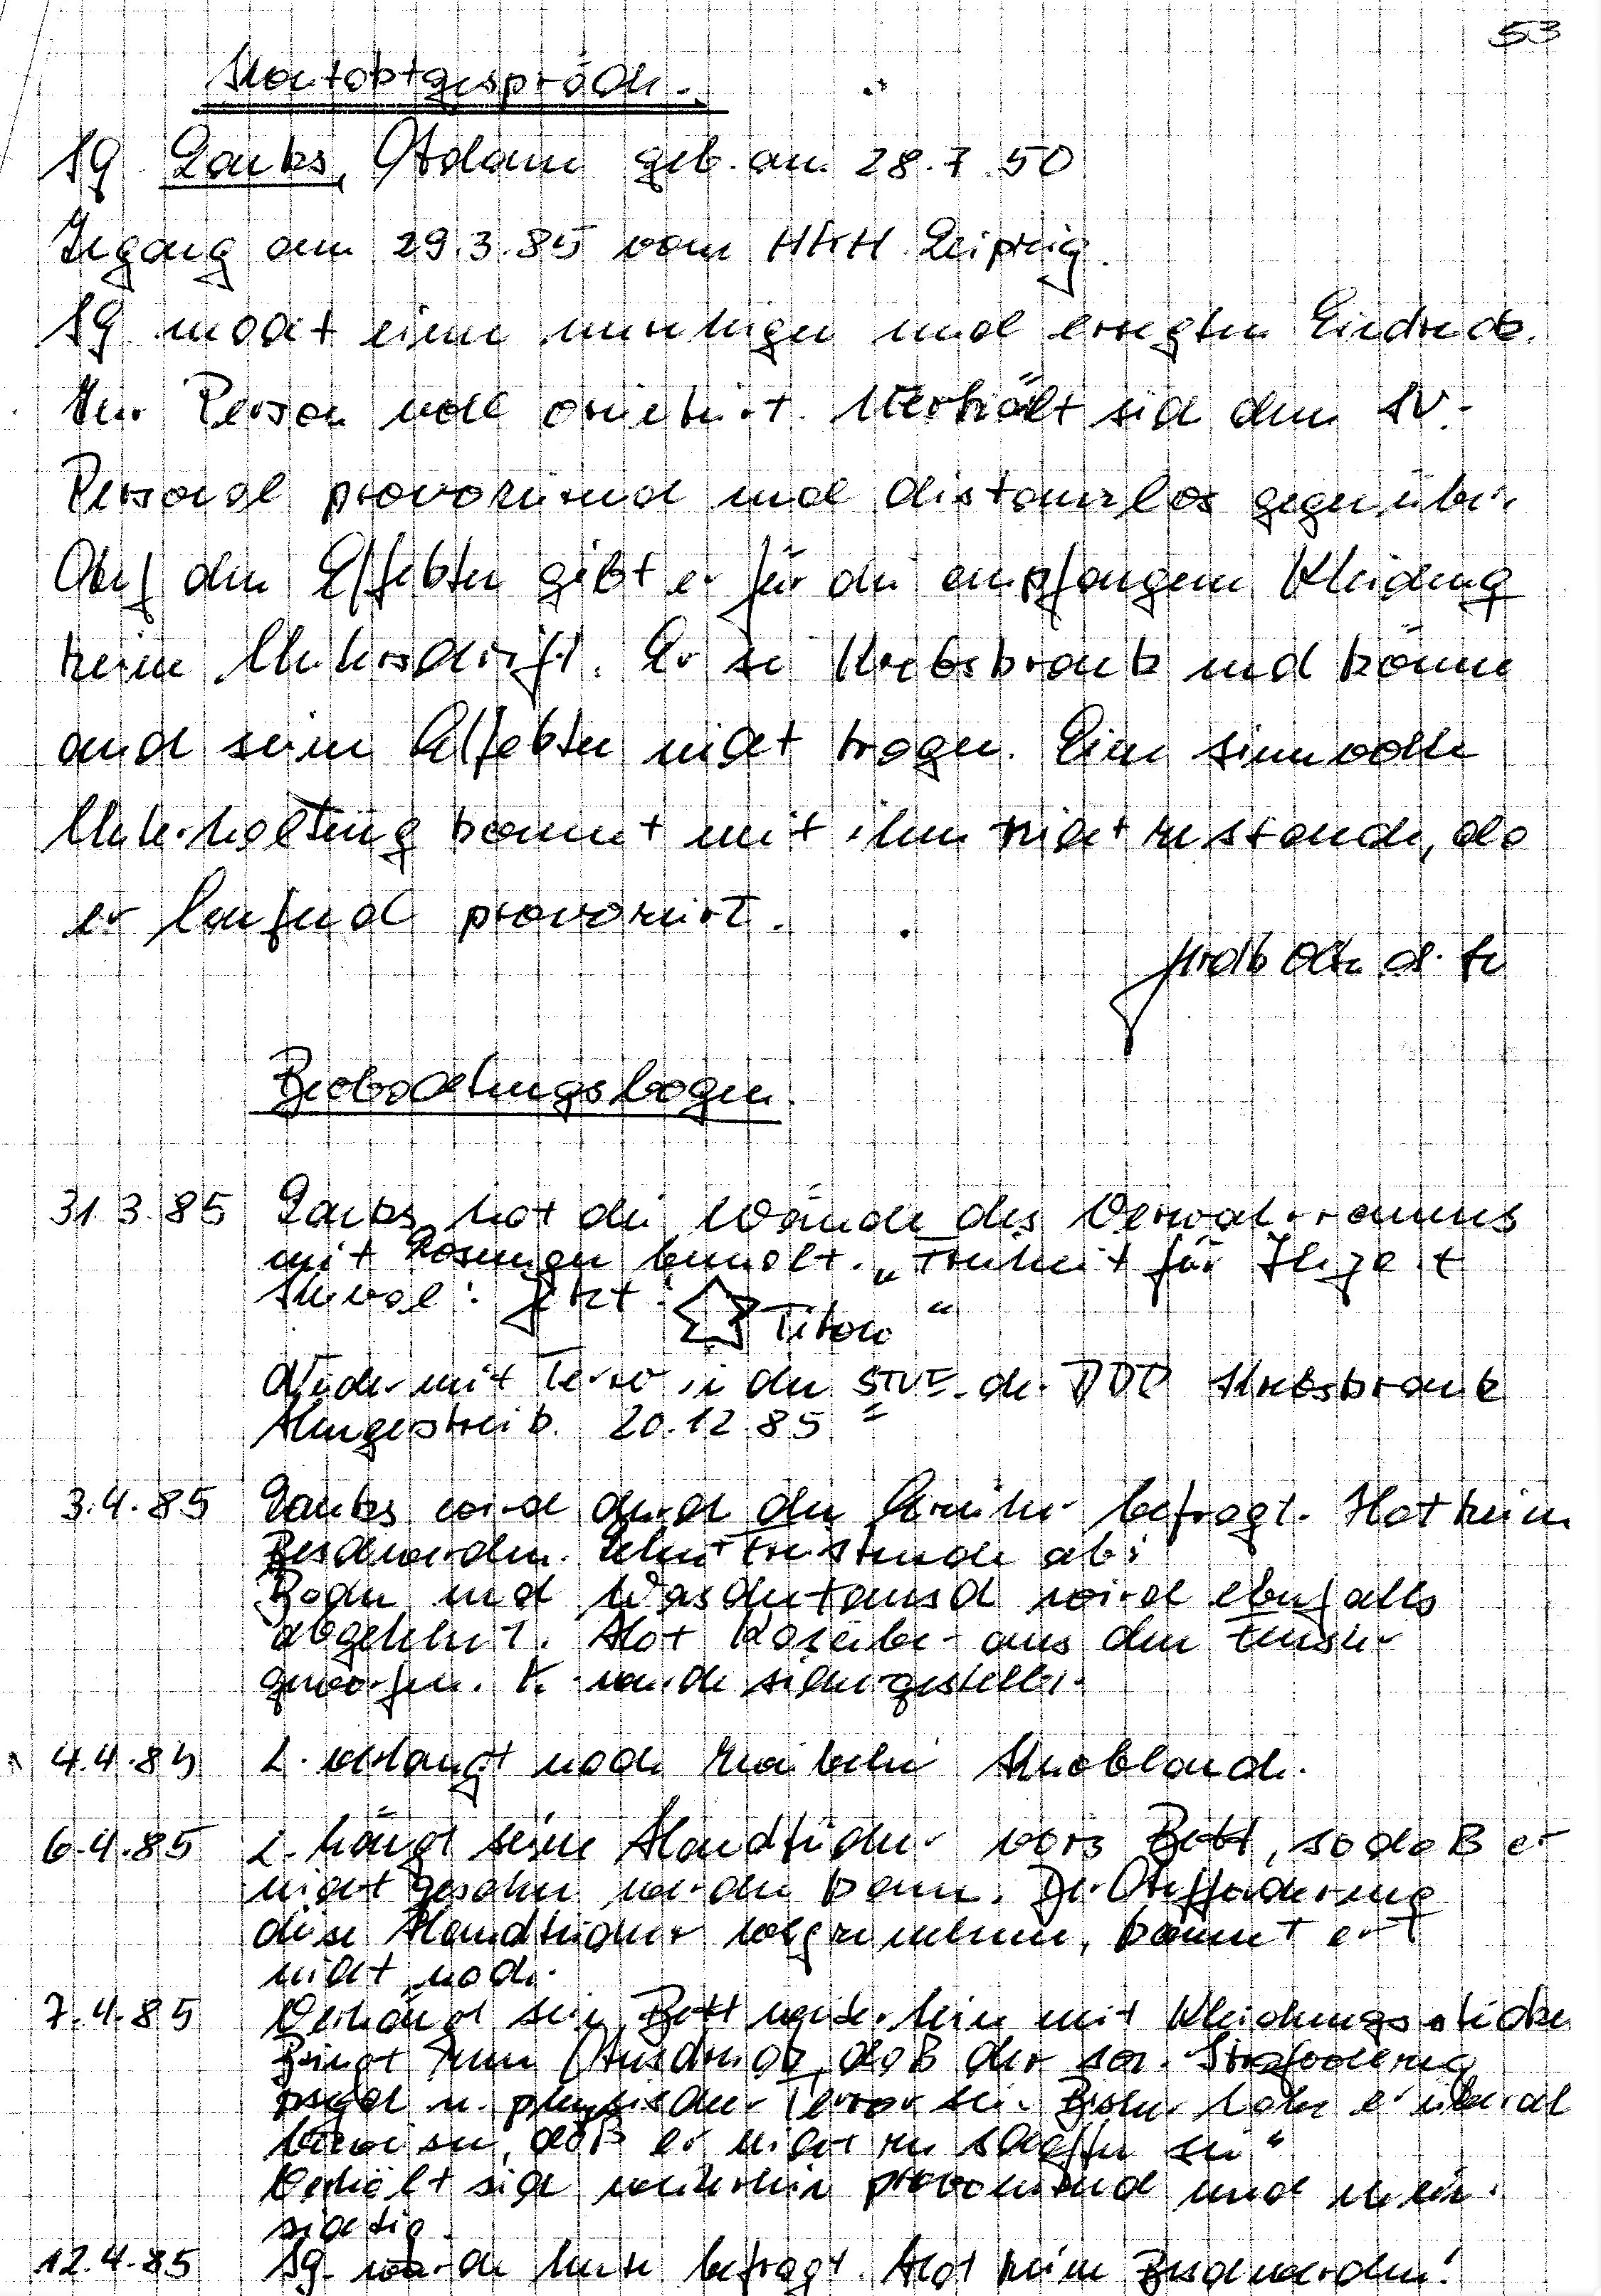 53
Kontaktgespräch.
SG Lauks, Adam geb. am 28.7.50
Zugang am 29.3.85 vom HKH Leipzig.
SG macht einen unruhigen und erregten Eindruck.
Zur Person voll orientiert. Verhält sich dem SV.-
Personal provozierend und distanzlos gegenüber.
Auf den Effekten gibt er für die empfangene Kleidung
keine Unterschrift. Er sei Krebskrank und könne
auch seine Effekten nicht tragen. Eine sinnvolle
Unterhaltung kommt mit ihm nicht zustande, da
er laufend provoziert.
Beobachtungsbogen.
31.3.85 Lauks hat die Wände des Verwahrraumes
mit Losungen bemalt. „Freiheit für
jetzt: Titow“
Nieder mit Terror in den STVE der DDR Krebskrank
Hungerstreik. 20.12.85
3.4.85 Lauks wird durch den Erzieher befragt. Hat keine
Beschwerden. Lehnt Freistunde ab.
Baden und Wäschetausch wird ebenfalls
abgelehnt. Hat aus dem Fenster
geworfen. K. wurde sichergestellt.
4.4.85 L. verlangt nach Knoblauch.
6.4.85 L. hängt seine Handtücher vors Bett, so daß er
nicht gesehen werden kann. Der Aufforderung
diese Handtücher wegzunehmen, kommt er
nicht nach.
7.4.85 Verhängt sein Bett weiterhin mit Kleidungsstücken
Bringt zum Ausdruck, daß der
psych u. physischer Terror sei. Bisher habe er überall
bewiesen, daß er nicht zu schaffen sei“
Verhält sich weiterhin provozierend und unein-
sichtig.
12.4.85 SG. wurde heute befragt. Hat keine Beschwerden!